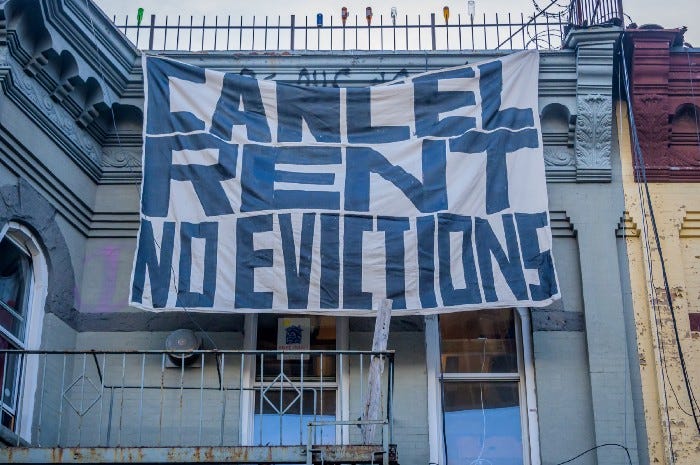 CANCEL
RENT
NO EVICTIONS